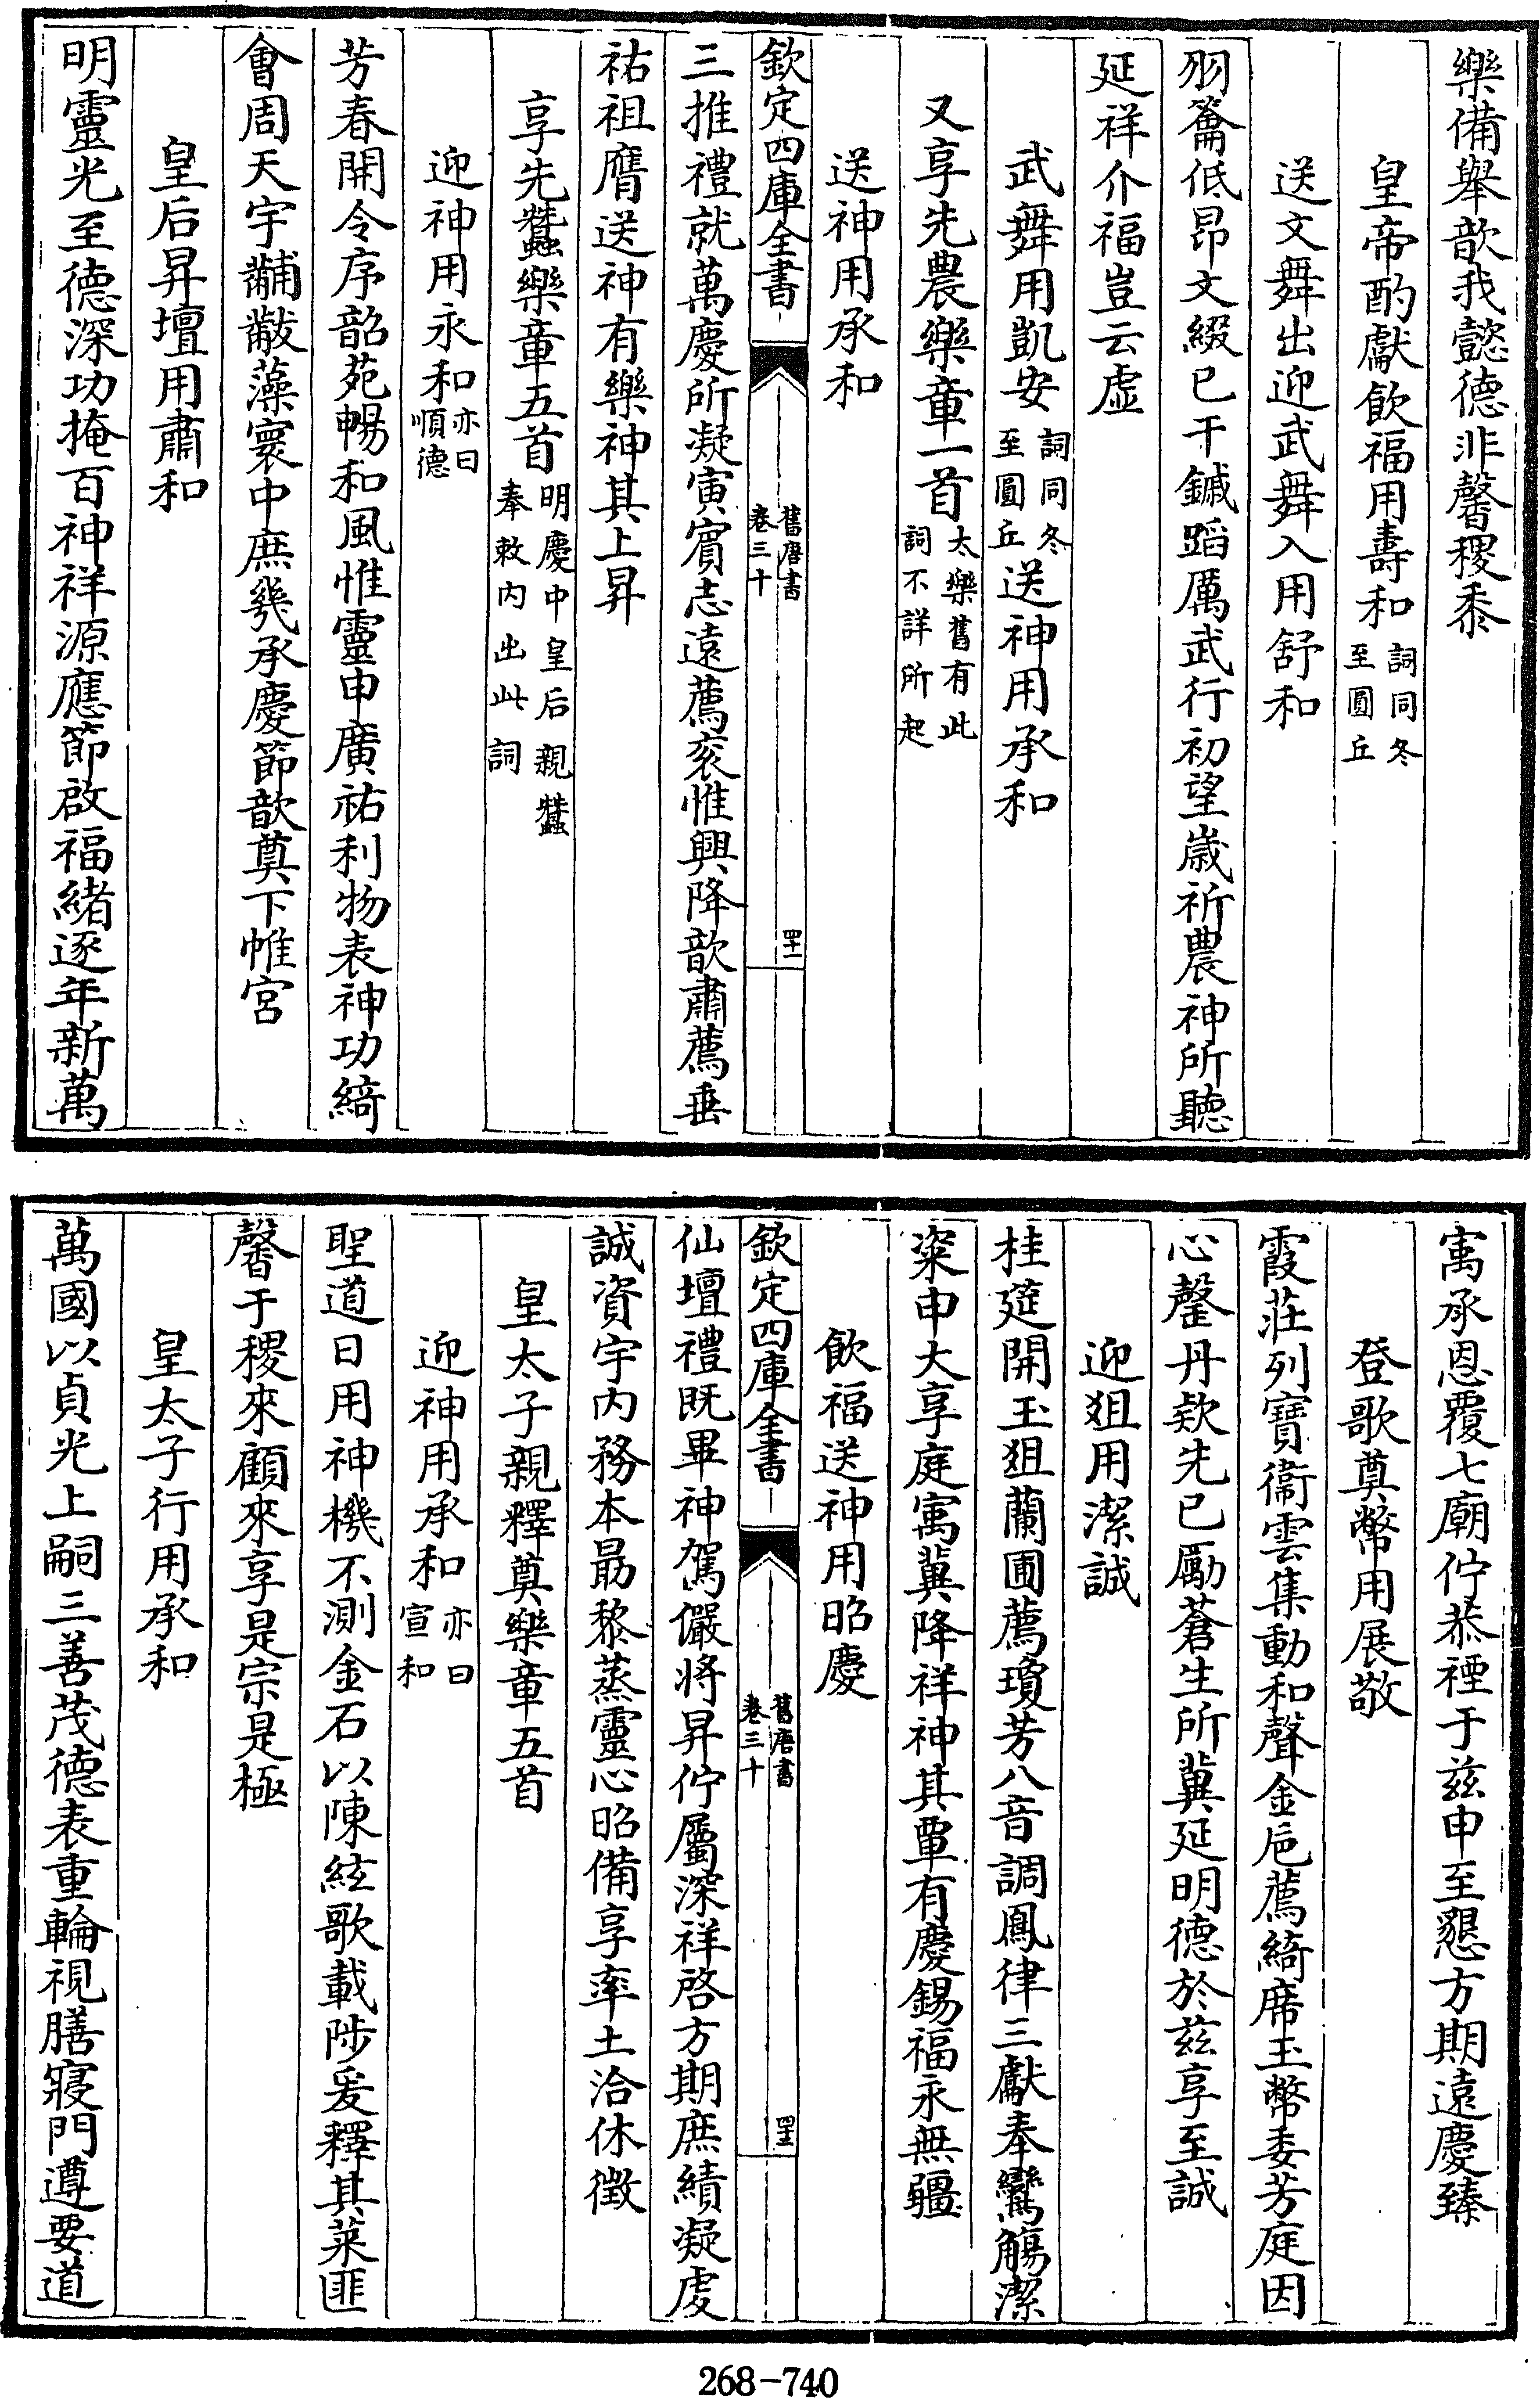 樂備舉歆我懿德非馨稷黍
皇帝酌獻飲福用壽和詞同冬至圓丘
送文舞出迎武舞入用舒和
羽籥低昂文綴已干鏚蹈厲武行初望歲祈農神所聽
延祥介福豈云虛
武舞用凱安詞同冬至圓丘送神用承和
又享先農樂章一首太樂舊有此詞不詳所起
送神用承和
欽定四庫全書 舊唐書卷三十 四十一
三推禮就萬慶所凝寅賓志遠薦衮惟興降歆肅薦垂
祐祖膺送神有樂神其上昇
享先蠶樂章五首明慶中皇后親蠶奉敕內出此詞
迎神用永和亦曰順德
芳春開令序韶苑暢和風惟靈申廣祐利物表神功綺
會周天宇黼黻藻寰中庶幾承慶節歆奠下帷宮
皇后昇壇用肅和
明靈光至德深功掩百神祥源應節啟福緒逐年新萬
寓承恩覆七廟佇恭禋于茲申至懇方期遠慶臻
登歌奠幣用展敬
霞莊列寶衞雲集動和聲金卮薦綺席玉幣委芳庭因
心罄丹欵先已勵蒼生所冀延明德於茲享至誠
迎俎用潔誠
桂筵開玉俎蘭圃薦瓊芳八音調鳳律三獻奉鸞觴潔
粢申大享庭寓冀降祥神其覃有慶錫福永無疆
飲福送神用昭慶
欽定四庫全書 舊唐書卷三十 四十二
仙壇禮既畢神駕儼將昇佇屬深祥啓方期庶績凝虔
誠資宇內務本朂黎蒸靈心昭備享率土洽休徵
皇太子親釋奠樂章五首
迎神用承和亦曰宣和
聖道日用神機不測金石以陳絃歌載陟爰釋其菜匪
馨于稷來顧來享是宗是極
皇太子行用承和
萬國以貞光上嗣三善茂德表重輪視膳寢門遵要道
268-740